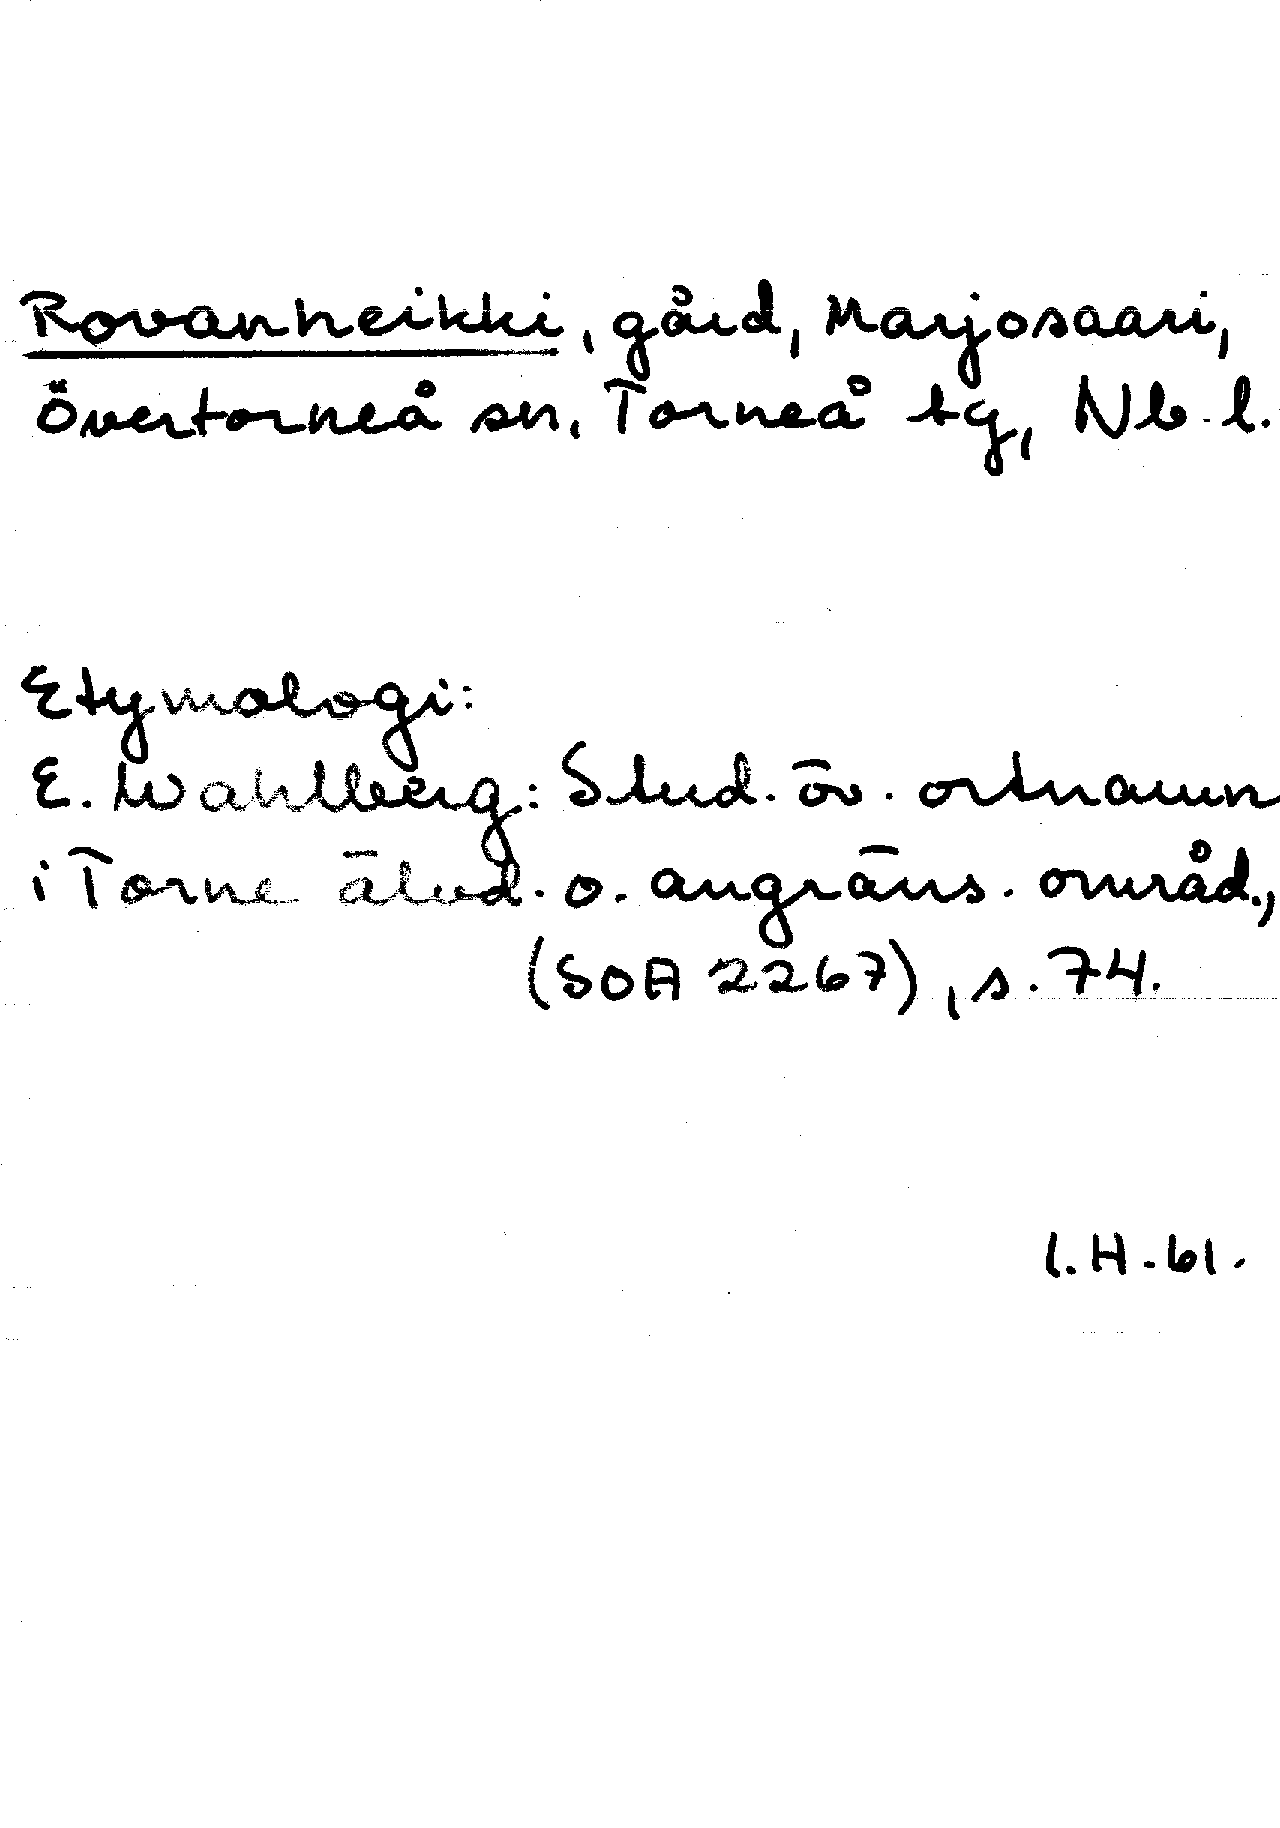 Rovanheikki, gård, Marjosaari,
Övertorneå sn, Torneå tg, Nb. l.
Etymologi:
E. Wahlberg: Stud. öv. ortnamn
i Torne älvd. o. angräns. områd.,
(SOA 2267), s. 74.
I. H. 61.